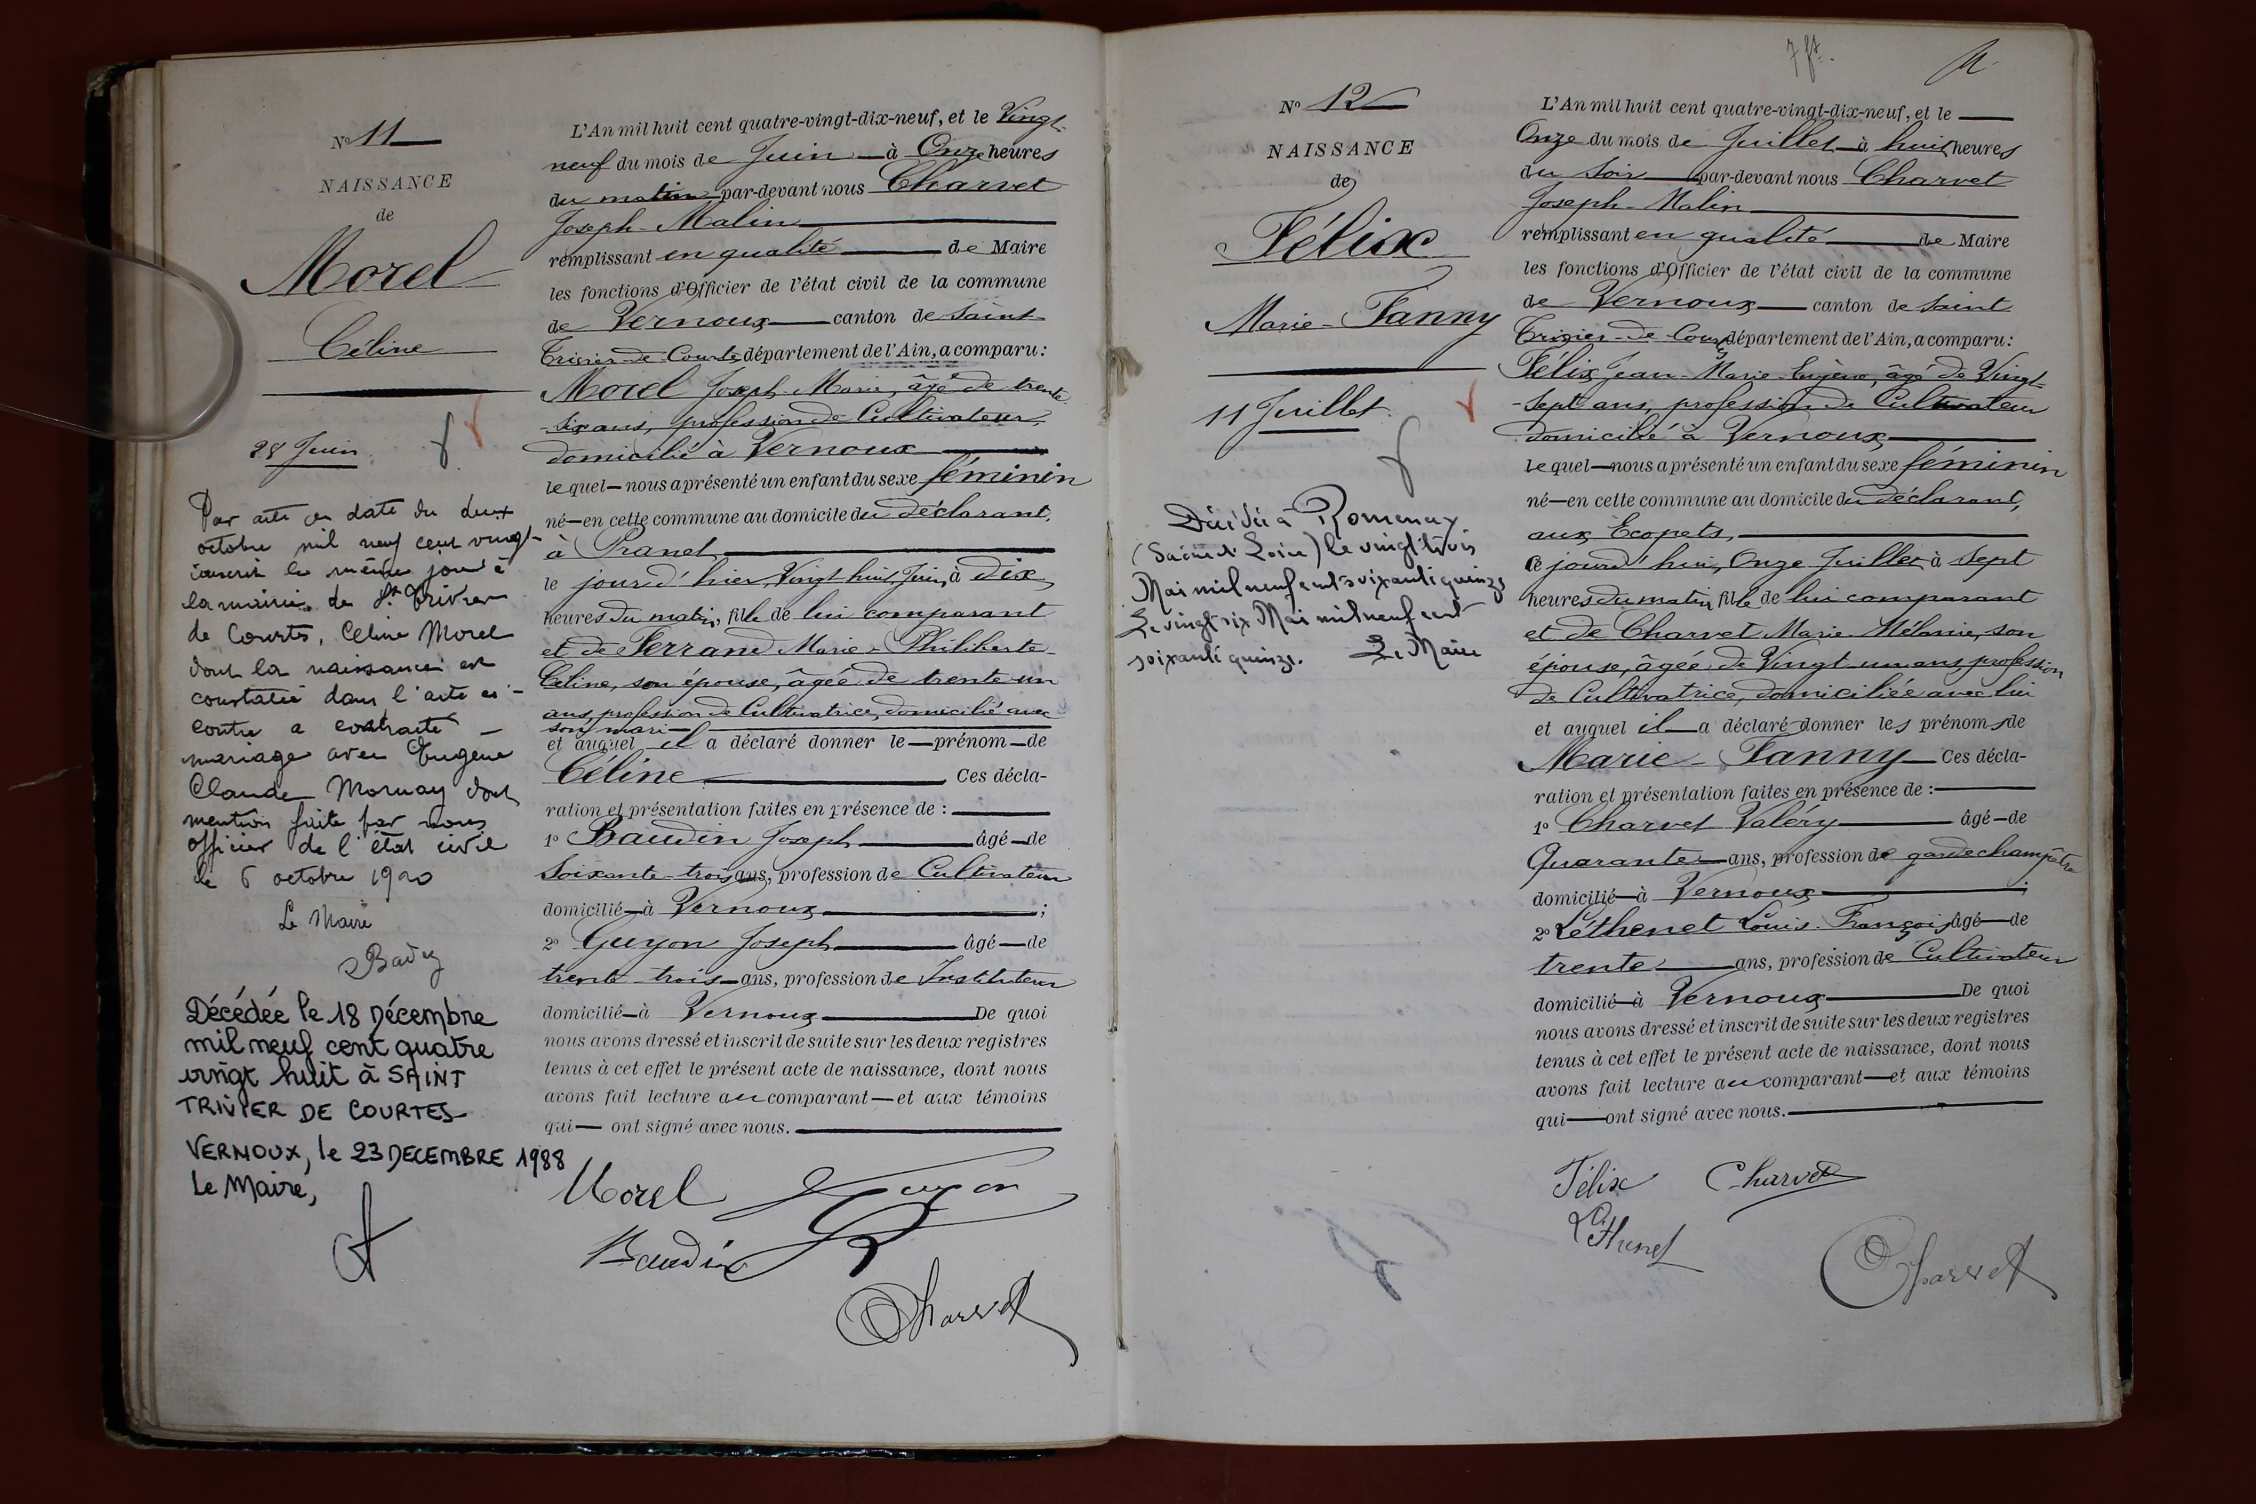 N° 11
NAISSANCE
de
Morel
Céline
28 Juin
Par acte en date du deux
octobre mil neuf cent vingt
transcrit le même jour à
la mairie de St Trivier
de Courtes, Céline Morel
dont la naissance est
constatée dans l'acte ci-
contre a contracté
mariage avec Eugène
Claude Mornay dont
mention faite par nous
officier de l'état civil
le 6 octobre 1920
Le Maire
Décédée le 18 Décembre
mil neuf cent quatre
vingt huit à SAINT
TRIVIER DE COURTES
VERNOUX, le 23 DECEMBRE 1988
Le Maire,
L'An mil huit cent quatre-vingt-dix-neuf, et le Vingt-
neuf du mois de Juin à Onze heures
du matin par-devant nous Charvet
Joseph-Malin
remplissant en qualité de Maire
les fonctions d'Officier de l'état civil de la commune
de Vernoux canton de Saint
Trivier-de-Courtes département de l'Ain, a comparu :
Morel Joseph-Marie, âgé de trente
-six ans, profession de Cultivateur,
domicilié à Vernoux
lequel nous a présenté un enfant du sexe féminin
né en cette commune au domicile du déclarant,
à Pranet
le jourd'hier, Vingt huit Juin, à dix
heures du matin, fille de lui comparant
et de Ferrand Marie-Philiberte-
Céline, son épouse, âgée de trente un
ans, profession de Cultivatrice, domicilié avec
son mari
et auquel il a déclaré donner le prénom de
Céline Ces décla-
ration et présentation faites en présence de :
1° Baudin Joseph âgé de
Soixante-trois ans, profession de Cultivateur
domicilié à Vernoux ;
2° Guyon Joseph âgé de
trente-trois ans, profession de Instituteur
domicilié à Vernoux De quoi
nous avons dressé et inscrit de suite sur les deux registres
tenus à cet effet le présent acte de naissance, dont nous
avons fait lecture au comparant et aux témoins
qui ont signé avec nous.
Morel Guyon
Baudin
Charvet
N° 12
NAISSANCE
de
Félix
Marie-Fanny
11 Juillet
Décédée à Romenay
(Saône et Loire) le vingt trois
Mai mil neuf cent soixante quinze
Le vingt six Mai mil neuf cent
soixante quinze. Le Maire
L'An mil huit cent quatre-vingt-dix-neuf, et le
Onze du mois de Juillet à huit heures
du Soir par-devant nous Charvet
Joseph-Malin
remplissant en qualité de Maire
les fonctions d'Officier de l'état civil de la commune
de Vernoux canton de Saint
Trivier-de-Courtes département de l'Ain, a comparu :
Félix Jean-Marie-Eugène, âgé de Vingt-
-Sept ans, profession de Cultivateur
domicilié à Vernoux
lequel nous a présenté un enfant du sexe féminin
né en cette commune au domicile du déclarant,
aux Ecopets,
ce jourd'hui, Onze Juillet à Sept
heures du matin, fille de lui comparant
et de Charvet Marie-Mélanie, son
épouse, âgée de Vingt-un ans profession
de Cultivatrice, domiciliée avec lui
et auquel il a déclaré donner les prénoms de
Marie-Fanny Ces décla-
ration et présentation faites en présence de :
1° Charvet Valéry âgé de
Quarante ans, profession de garde champêtre
domicilié à Vernoux ;
2° Léthenet Louis-François âgé de
trente ans, profession de Cultivateur
domicilié à Vernoux De quoi
nous avons dressé et inscrit de suite sur les deux registres
tenus à cet effet le présent acte de naissance, dont nous
avons fait lecture au comparant et aux témoins
qui ont signé avec nous.
Félix Charvet
Léthenet
Charvet